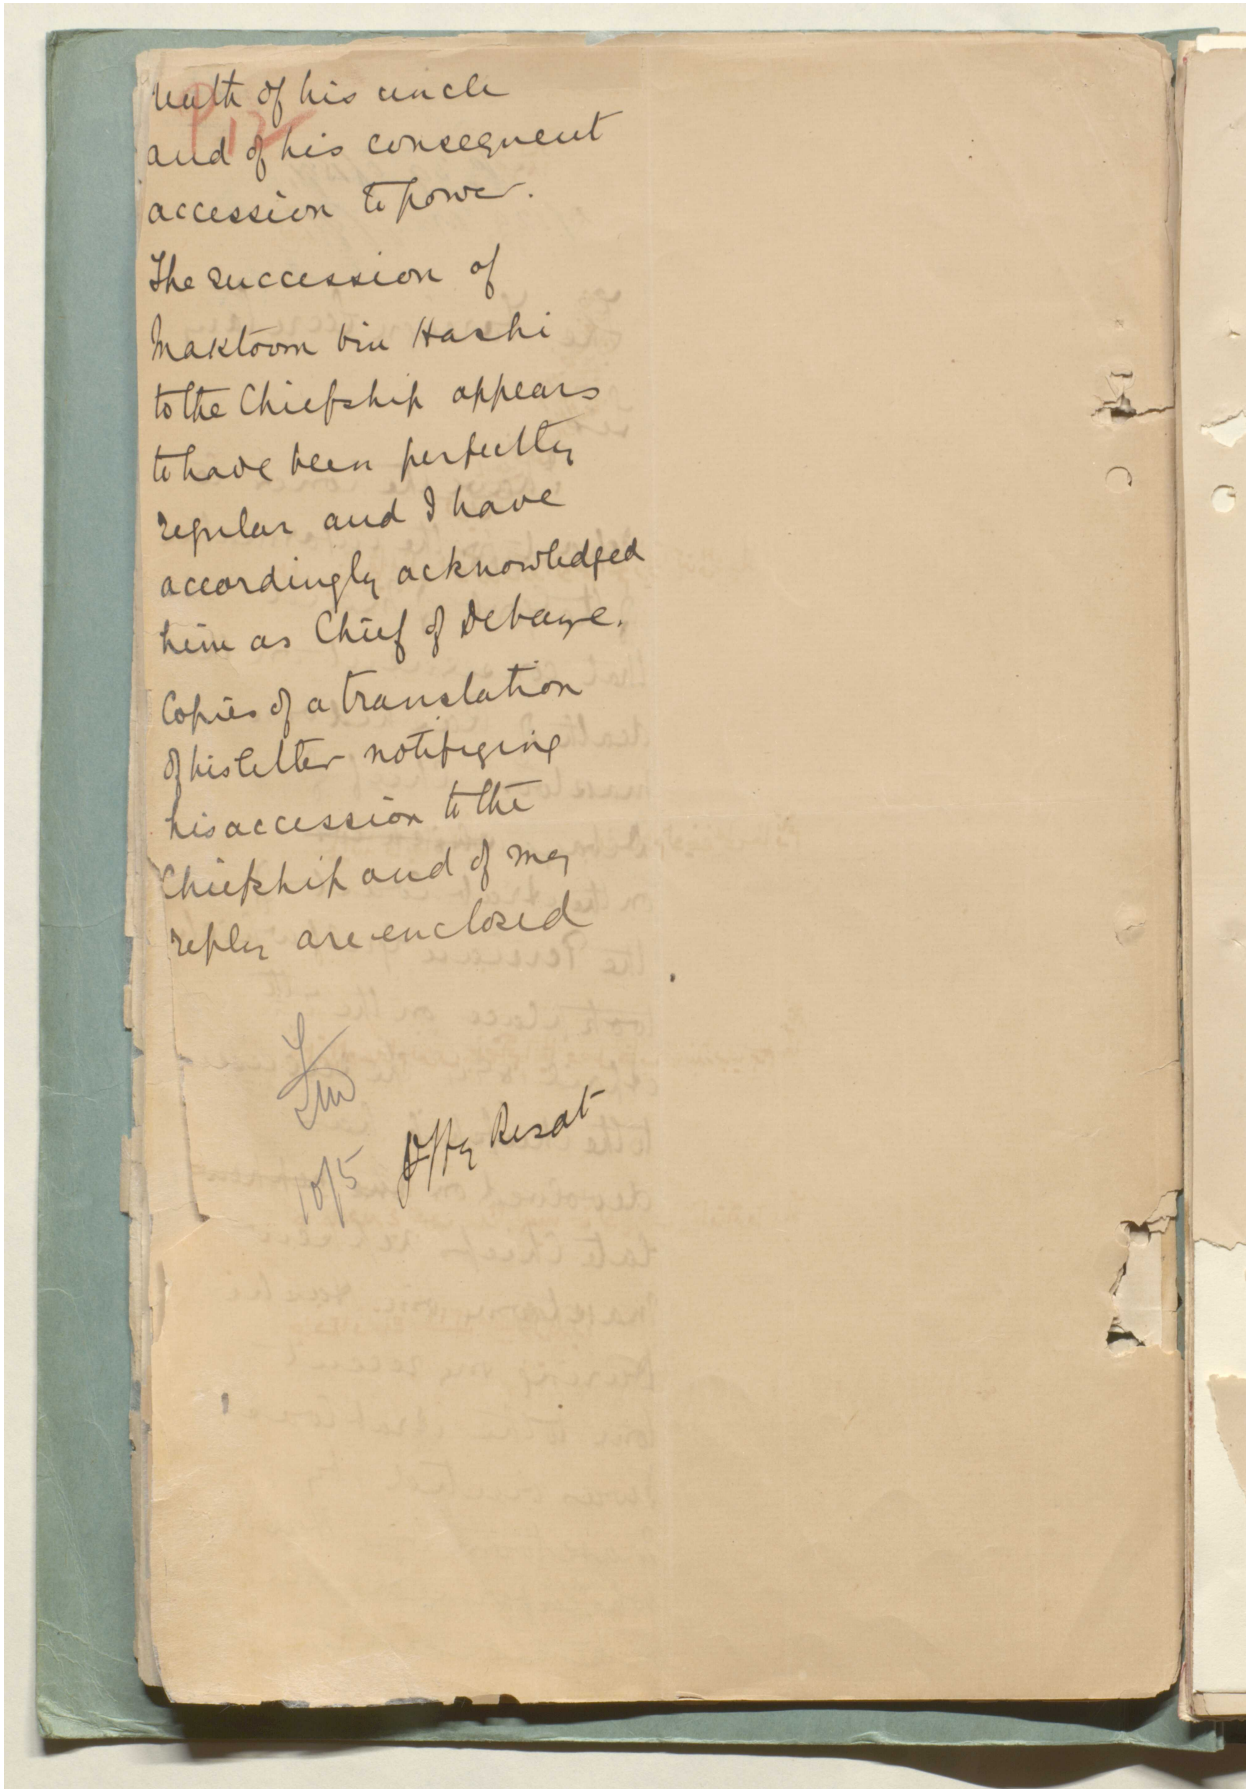 death of his uncle
and of his consequent
accession to power.
The succession of
Maktoom bin Hashi
to the Chiefship appears
to have been perfectly
regular and I have
accordingly acknowledged
him as Chief of Debaye.
Copies of a translation
of his letter notifying
his accession to the
Chiefship and of my
reply are enclosed
10/5